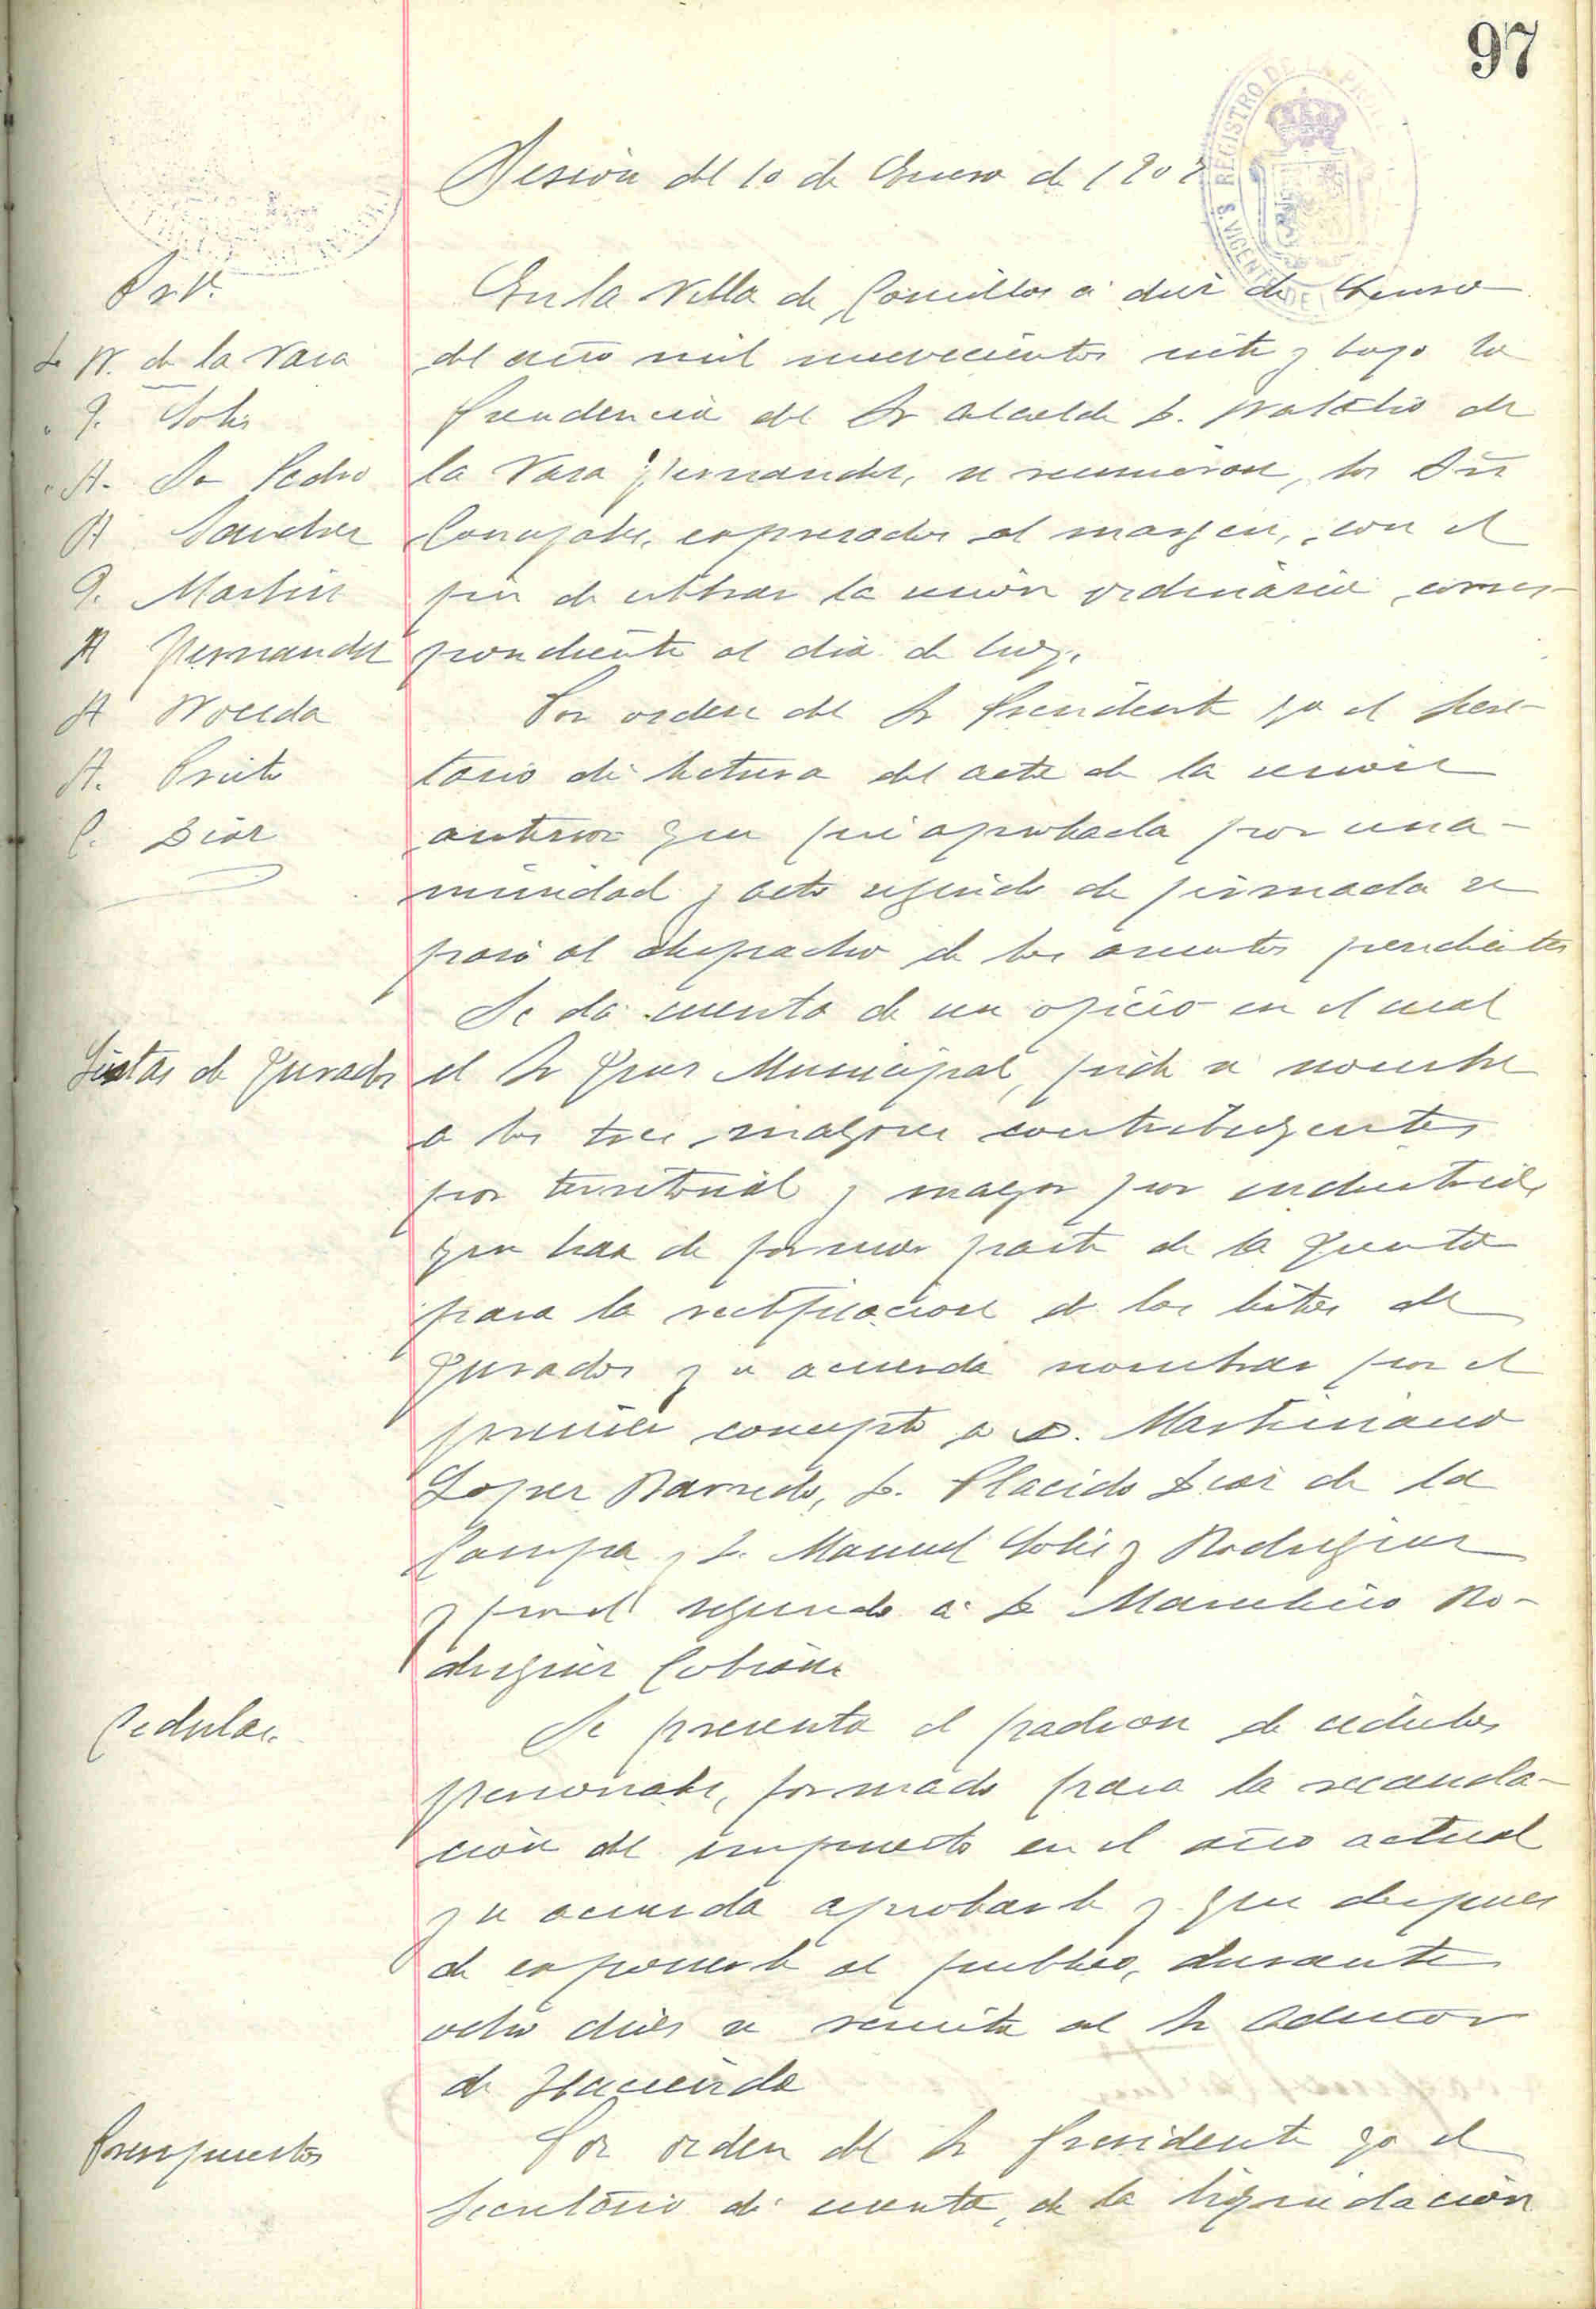 97
REGISTRO DE LA PROP
S. VICENTE DE
Sesión del 10 de Enero de 1907
Sres.
D. W. de la Vara
" J. Solis
" A. San Pedro
A Sanchez
J. Martin
A Fernandez
A Noceda
A. Prieto
C. Diaz
En la Villa de Comillas á diez de Enero
del año mil novecientos siete y bajo la
Presidencia del Sr Alcalde D. de
la Vara Fernandez, se reunieron, los Sres
Concejales, expresados al margen, con el
fin de celebrar la sesión ordinaria corres-
pondiente al dia de hoy.
Por orden del Sr Presidente yo el Secre-
tario di lectura del acta de la sesión
anterior que fué aprobada por una-
nimidad y acto seguido de firmada se
pasó al despacho de los asuntos pendientes
Listas de Jurados
Se dá cuenta de un oficio en el cual
el Sr Juez Municipal, pide se nombre
a los tres mayores contribuyentes
por territorial y mayor por industrial,
que han de formar parte de la Junta
para la rectificacion de las listas de
Jurados y se acuerda nombrar por el
primer concepto a D. Martiniano
Lopez Barredo, D. Placido Diaz de la
Campa y D. Manuel Solis y Rodriguez
y por el segundo á D Marcelino Ro-
driguez Cobian.
Cedulas.
Se presenta el padron de cedulas
personales, formado para la recauda-
ción del impuesto en el año actual
y se acuerda aprobarle y que despues
de exponerle al publico, durante
ocho dias se remita al Sr Admor
de Hacienda
Presupuestos
Por orden del Sr Presidente yo el
Secretario dí cuenta, de la liquidación